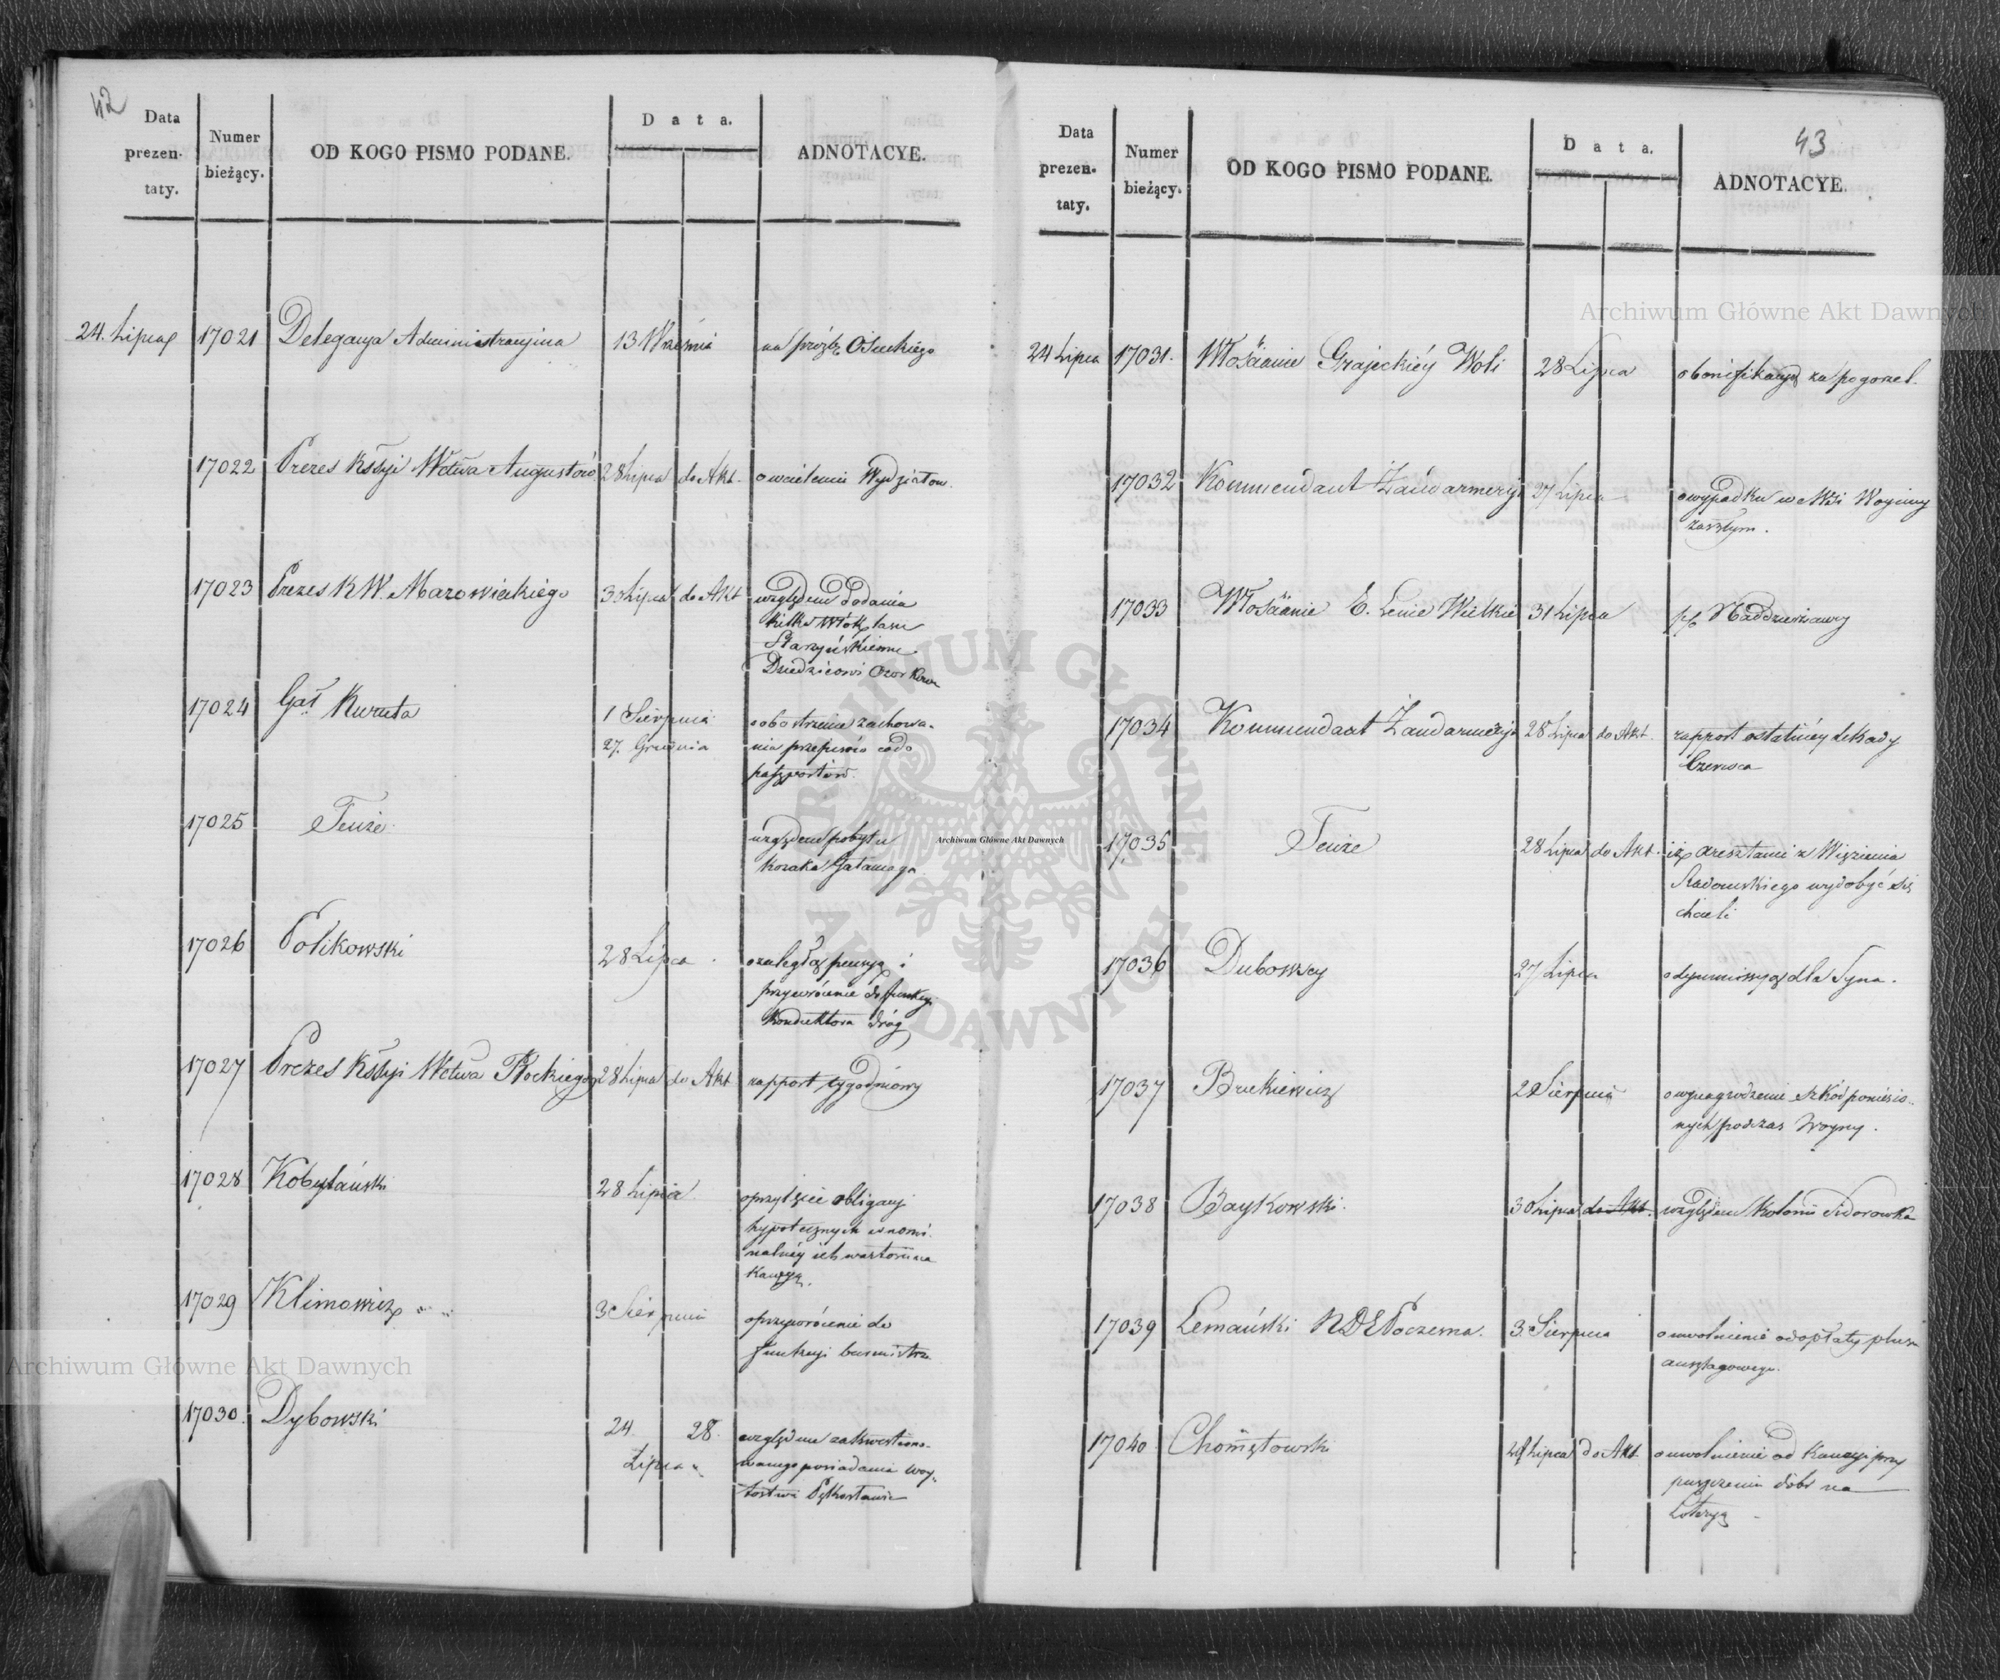 42
Data
prezen-
taty.
Numer
bieżący.
OD KOGO PISMO PODANE.
Data.
ADNOTACYE.
24. Lipca 17021 Delegacya Administracyina 13 Września na prośbę Osuckiego
17022 Prezes Kssyi Wctwa Augustow 28 Lipca do Akt. o wcielenie Wydziałow.
17023 Prezes K W. Mazowieckiego 30 Lipca do Akt względem dodania
kilku Włók lasu
Starzyńskiemu
Dziedzicowi Ozorkowa
17024 Gał Kuruta 1 Sierpnia o obostrzenie zachowa-
27. Grudnia nia przepisów co do
paszportów.
17025 Tenże względem pobytu
kozaka
17026 Polikowski 28 Lipca o zaległą pensyą i
przywrócenie do funkcyi
Konduktora dróg
17027 Prezes Kssyi Wctwa Płockiego 28 Lipca do Akt rapport tygodniowy
17028 Kobylański 28 Lipca o przyięcie obligacyi
hypotecznych w nomi-
nalnéy ich wartości na
kaucyą.
17029 Klimowicz 3 Sierpnia o przywrócenie do
funkcyi burmistrza
17030. Dybowski 24. 28. względem zakwestiono-
Lipca wanego posiadania Woy-
tostwa
43
Data
prezen-
taty.
Numer
bieżący.
OD KOGO PISMO PODANE.
Data.
ADNOTACYE.
24 Lipca 17031. Włościanie Grajeckiéy Woli 28 Lipca o bonifikacyą za pogorzel.
17032 Kommendant Żandarmeryi 27 Lipca o wypadku w Wsi
zaszłym.
17033 Włościanie E. Lenie Wielkie 31 Lipca p/o Naddzierżawcy
17034 Kommendant Żandarmeryi 28 Lipca do Akt. rapport ostatniéy dekady
Czerwca
17035 Tenże 28 Lipca do Akt. iż aresztanci z Więzienia
Radomskiego wydobyć się
chcieli
17036 Dubowscy 27 Lipca o dymissyą dla Syna.
17037 Brukiewicz 2 Sierpnia o wynagrodzenie szkód poniesio-
nych podczas Woyny.
17038 Baykowski. 30 Lipca do Akt. względem Kolonii Sidorowka
17039 Lemański NDE Poczesna. 3. Sierpnia o uwolnienie od opłaty plus
auszlagowego.
17040 Chomętowski Lipca do Akt. o uwolnienie od Kaucyi przy
puszczeniu dóbr na
Loteryą
Archiwum Główne Akt Dawnych
Archiwum Główne Akt Dawnych
Archiwum Główne Akt Dawnych
ARCHIWUM GŁÓWNE AKT DAWNYCH